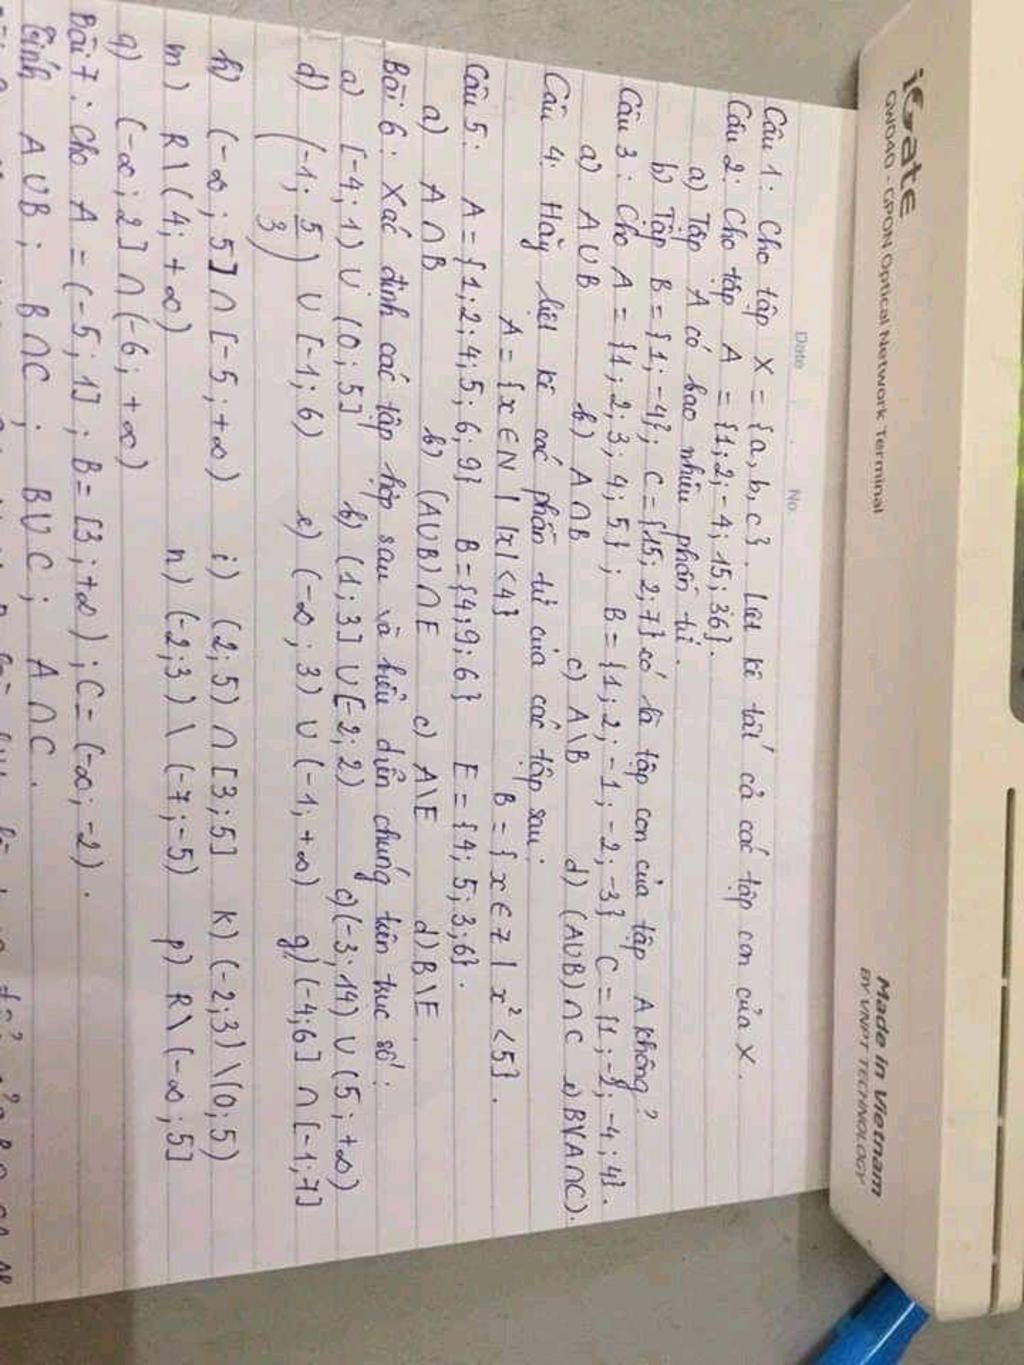 iGate
GW040 - GPON Optical Network Terminal
Made in Vietnam
BY VNPT TECHNOLOGY
Date No.
Câu 1: Cho tập X = {a, b, c}. Liệt kê tất cả các tập con của X.
Câu 2: Cho tập A = {1; 2; -4; 15; 36}.
a) Tập A có bao nhiêu phần tử.
b) Tập B = {1; -4}; C = {15; 2; 7} có là tập con của tập A không?
Câu 3: Cho A = {1; 2; 3; 4; 5}; B = {1; 2; -1; -2; -3} C = {1; -2; -4; 4}.
a) A ∪ B b) A ∩ B c) A \ B d) (A∪B) ∩ C e) B\(A∩C).
Câu 4: Hãy liệt kê các phần tử của các tập sau:
A = {x ∈ N | |x| < 4} B = {x ∈ Z | x² < 5}.
Câu 5: A = {1; 2; 4; 5; 6; 9} B = {4; 9; 6} E = {4; 5; 3; 6}.
a) A ∩ B b) (A∪B) ∩ E c) A\E d) B\E.
Bài 6: Xác định các tập hợp sau và biểu diễn chúng trên trục số:
a) [-4; 1) ∪ (0; 5] b) (1; 3] ∪ [-2; 2) c) (-3; 14) ∪ (5; +∞)
d) (-1; 5/3) ∪ [-1; 6) e) (-∞; 3) ∪ (-1; +∞) g) (-4; 6] ∩ [-1; 7]
h) (-∞; 5] ∩ [-5; +∞) i) (2; 5) ∩ [3; 5] k) (-2; 3) \ (0; 5)
m) R \ (4; +∞) n) (-2; 3) \ (-7; -5) p) R \ (-∞; 5]
q) (-∞; 2] ∩ (-6; +∞)
Bài 7: Cho A = (-5; 1]; B = [3; +∞); C = (-∞; -2).
Tính A ∪ B; B ∩ C; B ∪ C; A ∩ C.